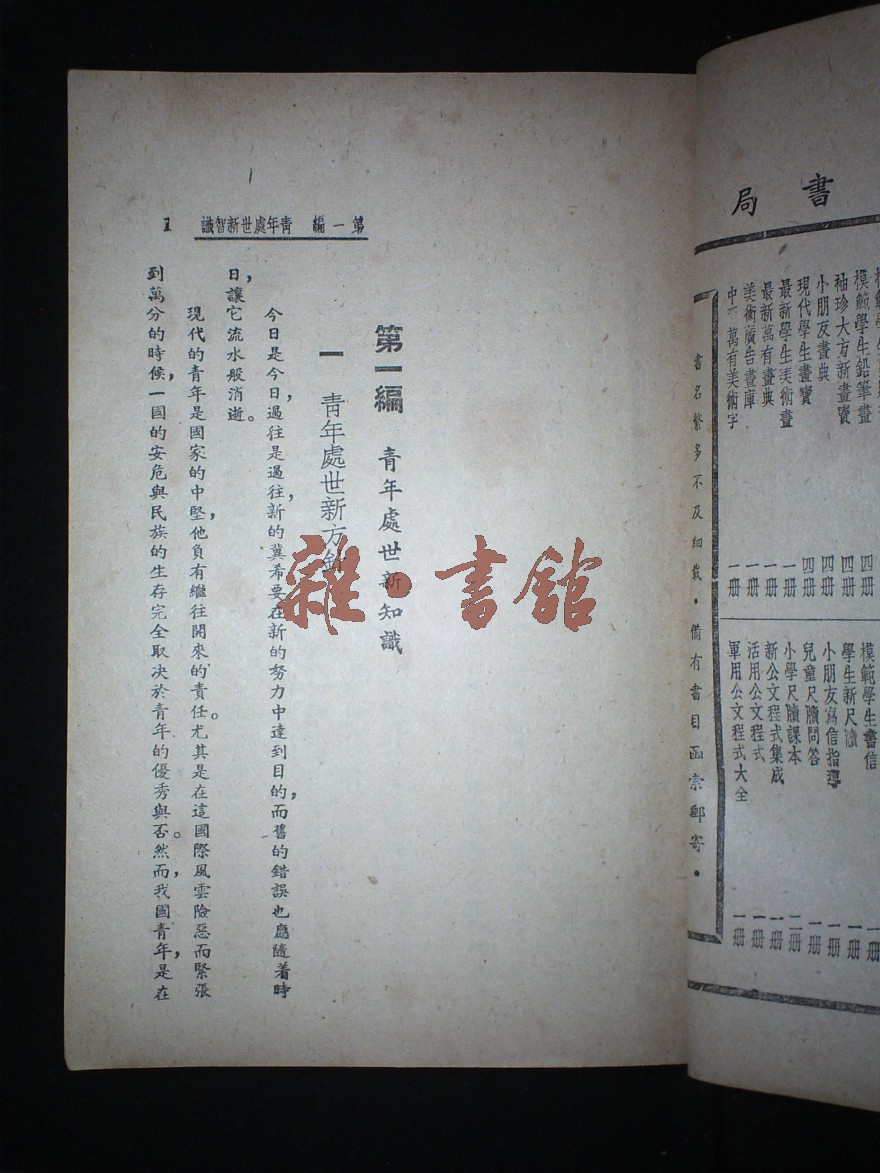 書局
模範學生鉛筆畫 四册
袖珍大方新畫寶 四册
小朋友畫典 四册
現代學生畫寶 四册
最新學生美術畫 一册
最新萬有畫典 一册
美術廣告畫庫 一册
萬有美術字 一册
模範學生書信 一册
學生新尺牘 一册
小朋友寫信指導 一册
兒童尺牘問答 一册
小學尺牘課本 二册
新公文程式集成 一册
活用公文程式 一册
軍用公文程式大全 一册
書名繁多不及細載・備有書目函索郵寄・
第一編 青年處世新智識 1
第一編 青年處世新知識
一 青年處世新方針
今日是今日,過往是過往,新的冀希要在新的努力中達到目的,而舊的錯誤也應隨着時
日,讓它流水般消逝。
現代的青年是國家的中堅,他負有繼往開來的責任。尤其是在這國際風雲險惡而緊張
到萬分的時候,一國的安危與民族的生存完全取决於青年的優秀與否。然而,我國青年,是在
雜・書館